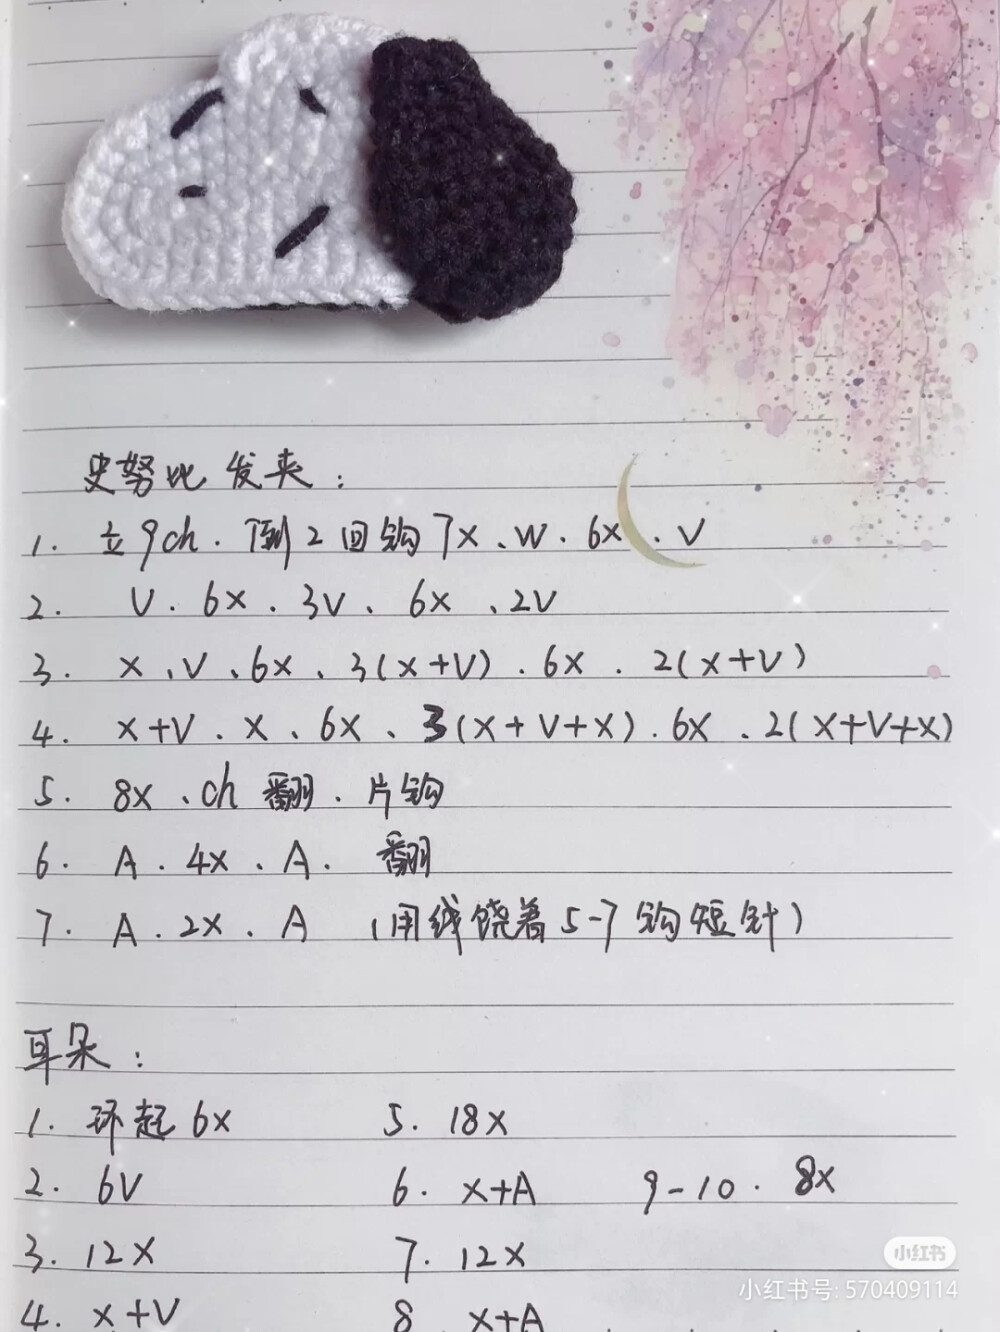 史努比发夹：
1. 立9ch. 倒2回钩7X、W. 6X、V
2. V. 6X. 3V、6X、2V
3. X、V、6X、3(X+V). 6X. 2(X+V)
4. X+V. X、6X、3(X+V+X). 6X. 2(X+V+X)
5. 8X、ch 翻. 片钩
6. A. 4X、A. 翻
7. A. 2X、A (用线绕着5-7钩短针)
耳朵：
1. 环起6X 5. 18X
2. 6V 6. X+A 9-10. 8X
3. 12X 7. 12X
4. X+V 8 X+A
小红书
小红书号: 570409114